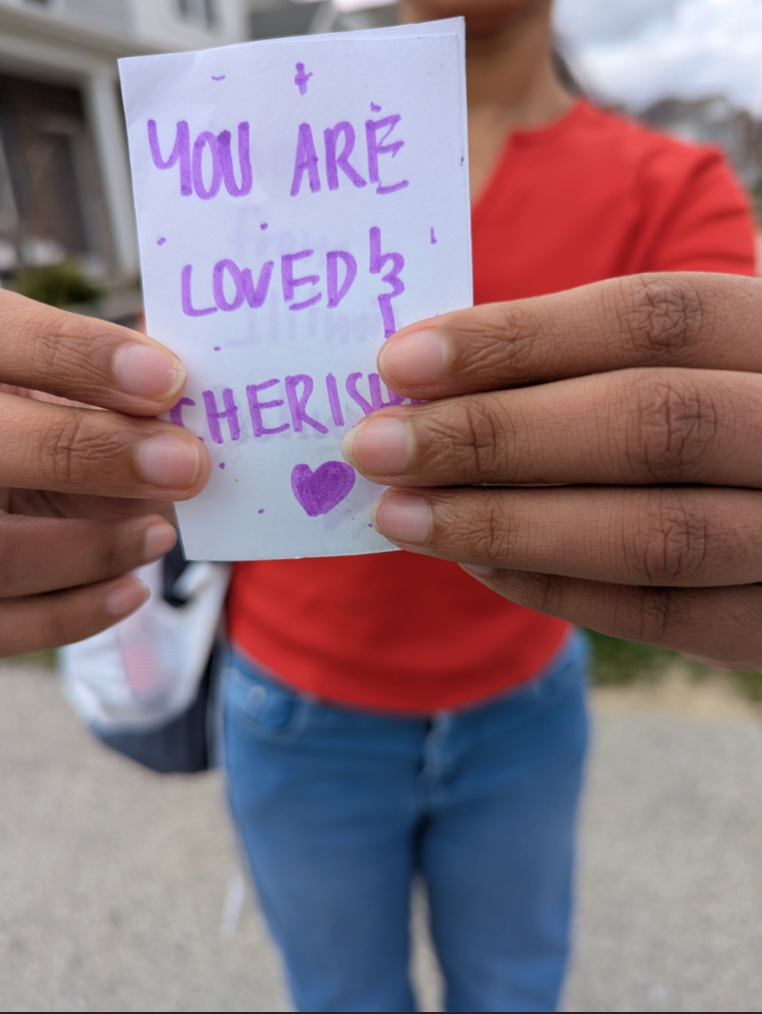 YOU ARE
LOVED &
CHERISH